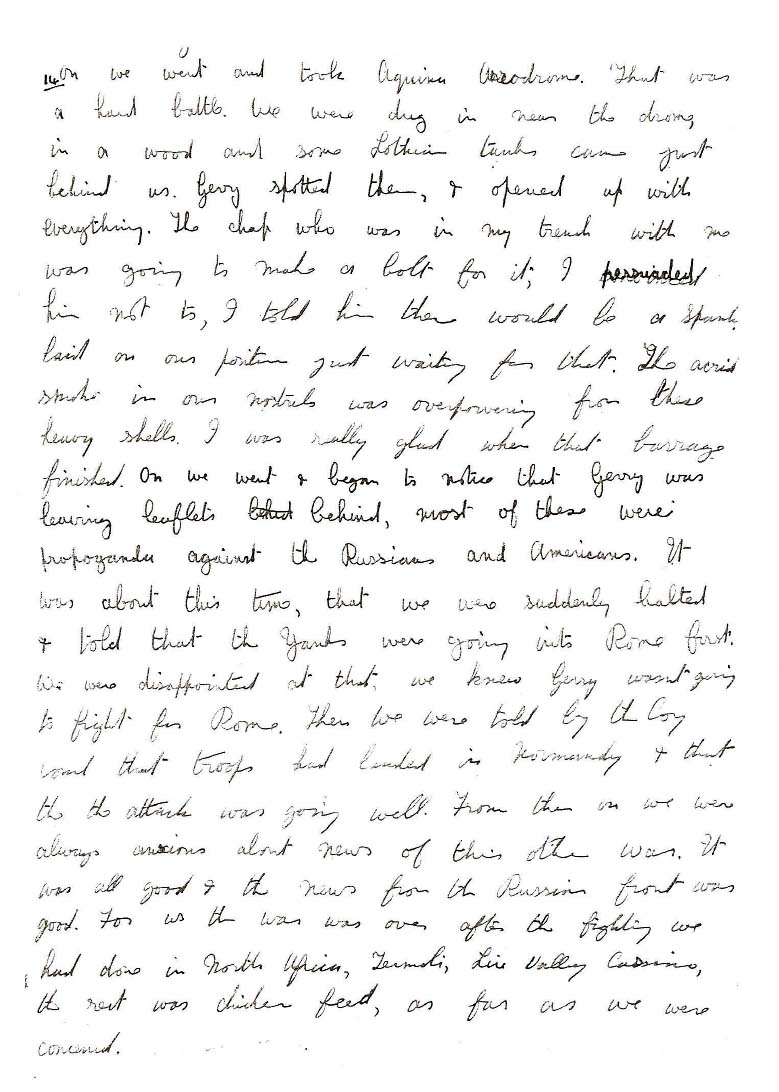 14 On we went and took Aquina Areodrome. That was
a hard battle. We were dug in near the drome,
in a wood and some Lothian tanks came just
behind us. Gerry spotted them, & opened up with
everything. The chap who was in my trench with me
was going to make a bolt for it, I persuaded
him not to, I told him there would be a Spandau
laid on our position just waiting for that. The acrid
smoke in our nostrels was overpowering from these
heavy shells. I was really glad when that barrage
finished. On we went & began to notice that Gerry was
leaving leaflets behind, most of these were
propoganda against the Russians and Americans. It
was about this time, that we were suddenly halted
& told that the Yanks were going into Rome first.
We were disappointed at that, we knew Gerry wasnt going
to fight for Rome. Then we were told by the Coy
comd that troops had landed in Normandy & that
the the attack was going well. From then on we were
always anxious about news of this other war. It
was all good & the news from the Russian front was
good. For us the war was over after the fighting we
had done in North Africa, Termoli, Liri Valley Cassino,
the rest was chicken feed, as far as we were
concerned.